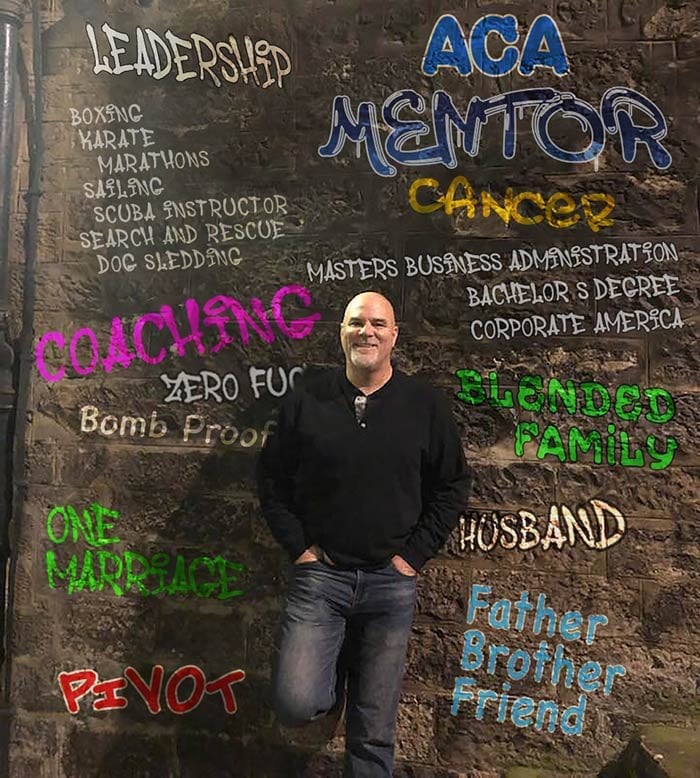 LEADERSHIP
BOXING
KARATE
MARATHONS
SAILING
SCUBA INSTRUCTOR
SEARCH AND RESCUE
DOG SLEDDING
COACHING
ZERO FUC
Bomb Proof
ONE
MARRIAGE
PIVOT
ACA
MENTOR
CANCER
MASTERS BUSINESS ADMINISTRATION
BACHELOR S DEGREE
CORPORATE AMERICA
BLENDED
FAMILY
HUSBAND
Father
Brother
Friend